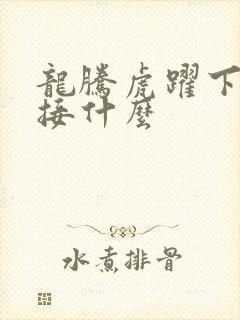 龍騰虎躍下
接什麼
水煮排骨